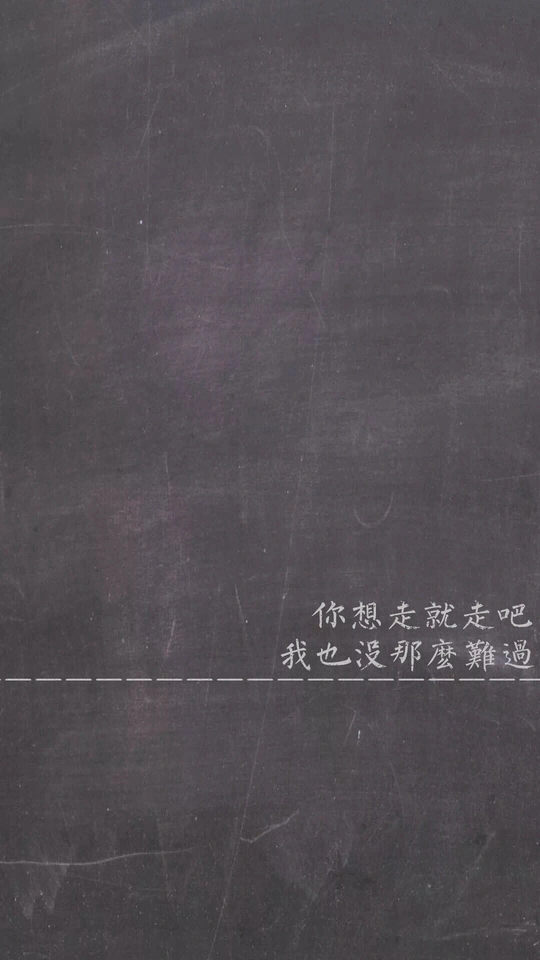 你想走就走吧
我也没那麽難過